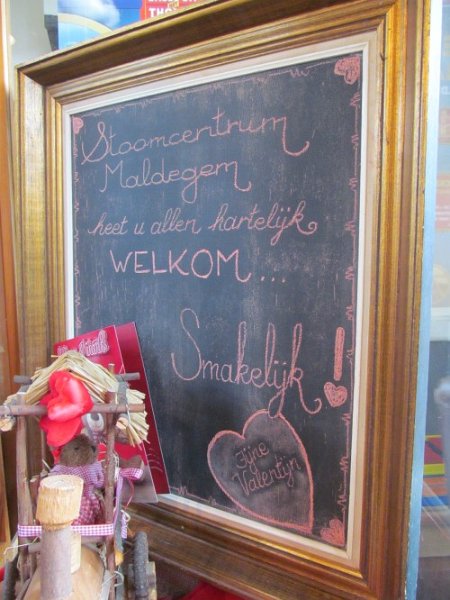 Stoomcentrum
Maldegem
heet u allen hartelijk
WELKOM...
Smakelijk!
Fijne
Valentijn